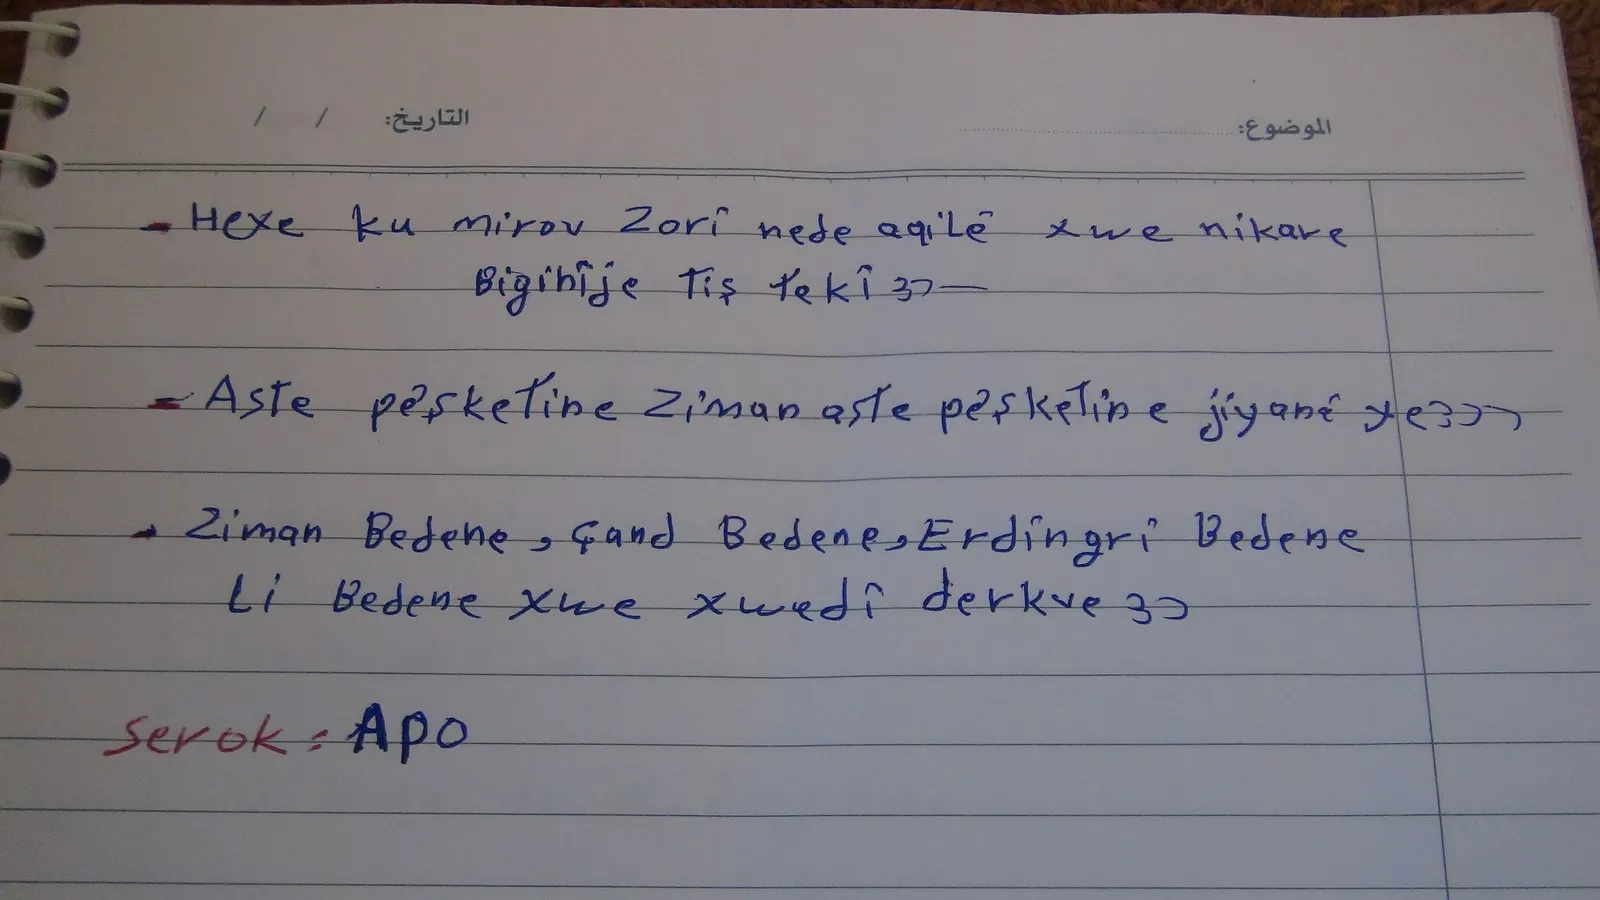 الموضوع: التاريخ: / /
- Hexe ku mirov Zorî nede aqilê xwe nikare
Bigihîje Tiş tekî
- Aste pêşketine Ziman aste pêşketine jiyanê ye
- Ziman Bedene, Çand Bedene, Erdîngrî Bedene
Li Bedene xwe xwedî derkve
Serok: Apo